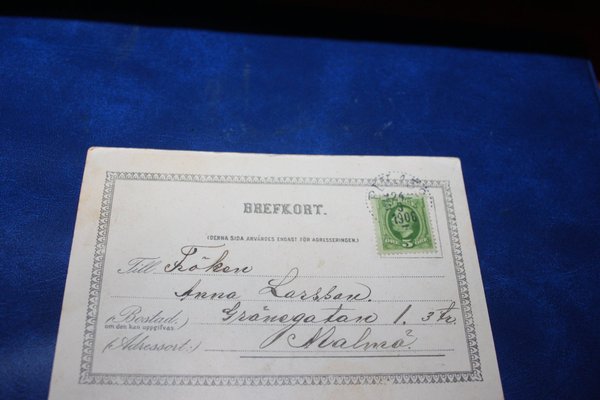 BREFKORT.
(DENNA SIDA ANVÄNDES ENDAST FÖR ADRESSERINGEN.)
1906
5
ÖRE ÖRE
Till Fröken
Anna Larsson.
(Bostad.) Grönegatan 1. 3 tr.
om den kan uppgifvas
(Adressort:) Malmö